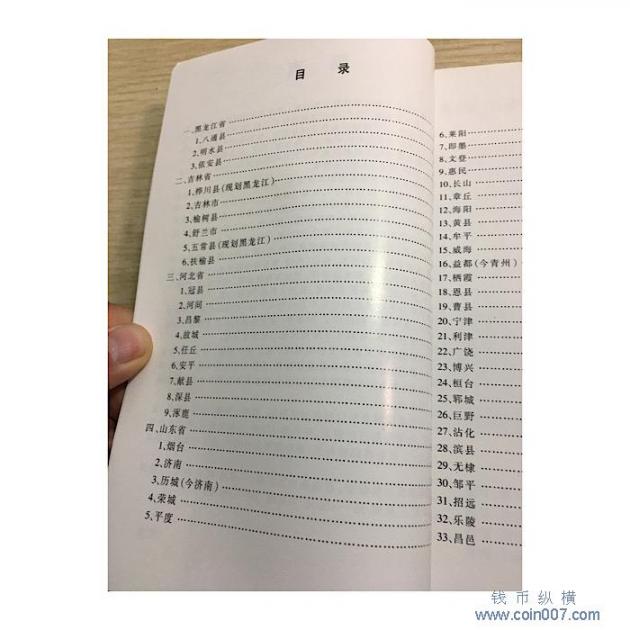 目 录
一、黑龙江省
1、八通县
2、明水县
3、依安县
二、吉林省
1、桦川县(现划黑龙江)
2、吉林市
3、榆树县
4、舒兰市
5、五常县(现划黑龙江)
6、扶榆县
三、河北省
1、冠县
2、河间
3、昌黎
4、故城
5、任丘
6、安平
7、献县
8、深县
9、涿鹿
四、山东省
1、烟台
2、济南
3、历城(今济南)
4、荣城
5、平度
6、莱阳
7、即墨
8、文登
9、惠民
10、长山
11、章丘
12、海阳
13、黄县
14、牟平
15、威海
16、益都(今青州)
17、栖霞
18、恩县
19、曹县
20、宁津
21、利津
22、广饶
23、博兴
24、桓台
25、郓城
26、巨野
27、沾化
28、滨县
29、无棣
30、邹平
31、招远
32、乐陵
33、昌邑
钱币纵横
www.coin007.com